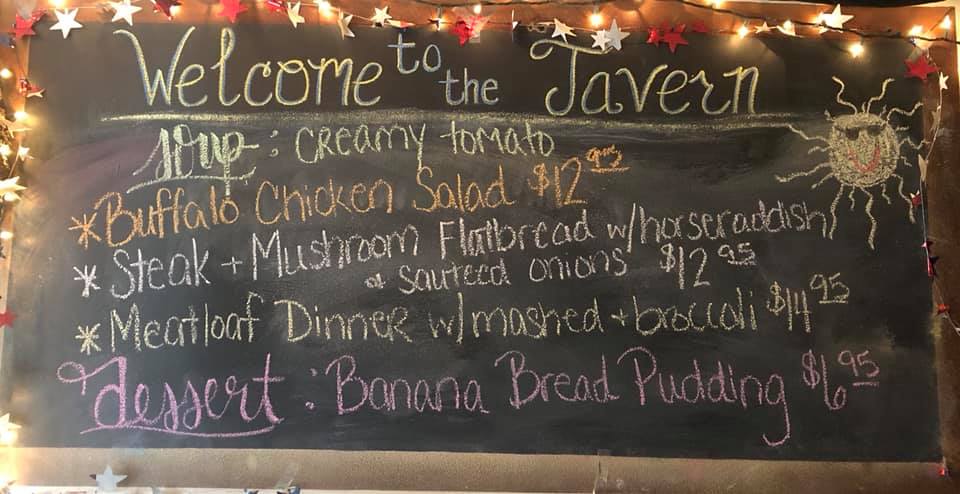 Welcome to the Tavern
soup: creamy tomato
*Buffalo Chicken Salad $12 95
*Steak + Mushroom Flatbread w/horseraddish
& sauteed onions $12 95
*Meatloaf Dinner w/mashed + broccoli $14 95
dessert: Banana Bread Pudding $6 95